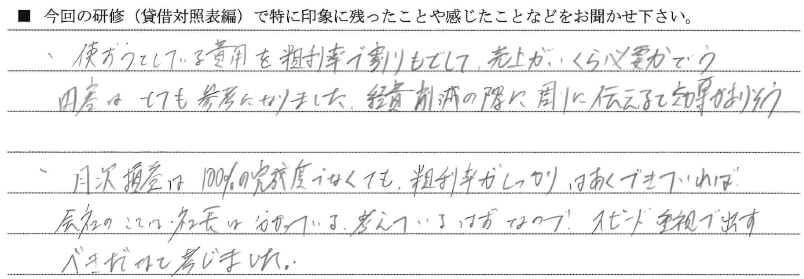 ■ 今回の研修（貸借対照表編）で特に印象に残ったことや感じたことなどをお聞かせ下さい。
、使おうとしている費用を粗利率で割りもどして、売上がいくら必要かという
田舎は とても参考になりました。経費削減の際に周りに伝えると効果がありそう
、月次損益は100%の完成度でなくても、粗利率がしっかりはあくできていれば
会社のことは社長は分かっている、考えているはずなので、スピード重視で出す
べきだなと考じました。